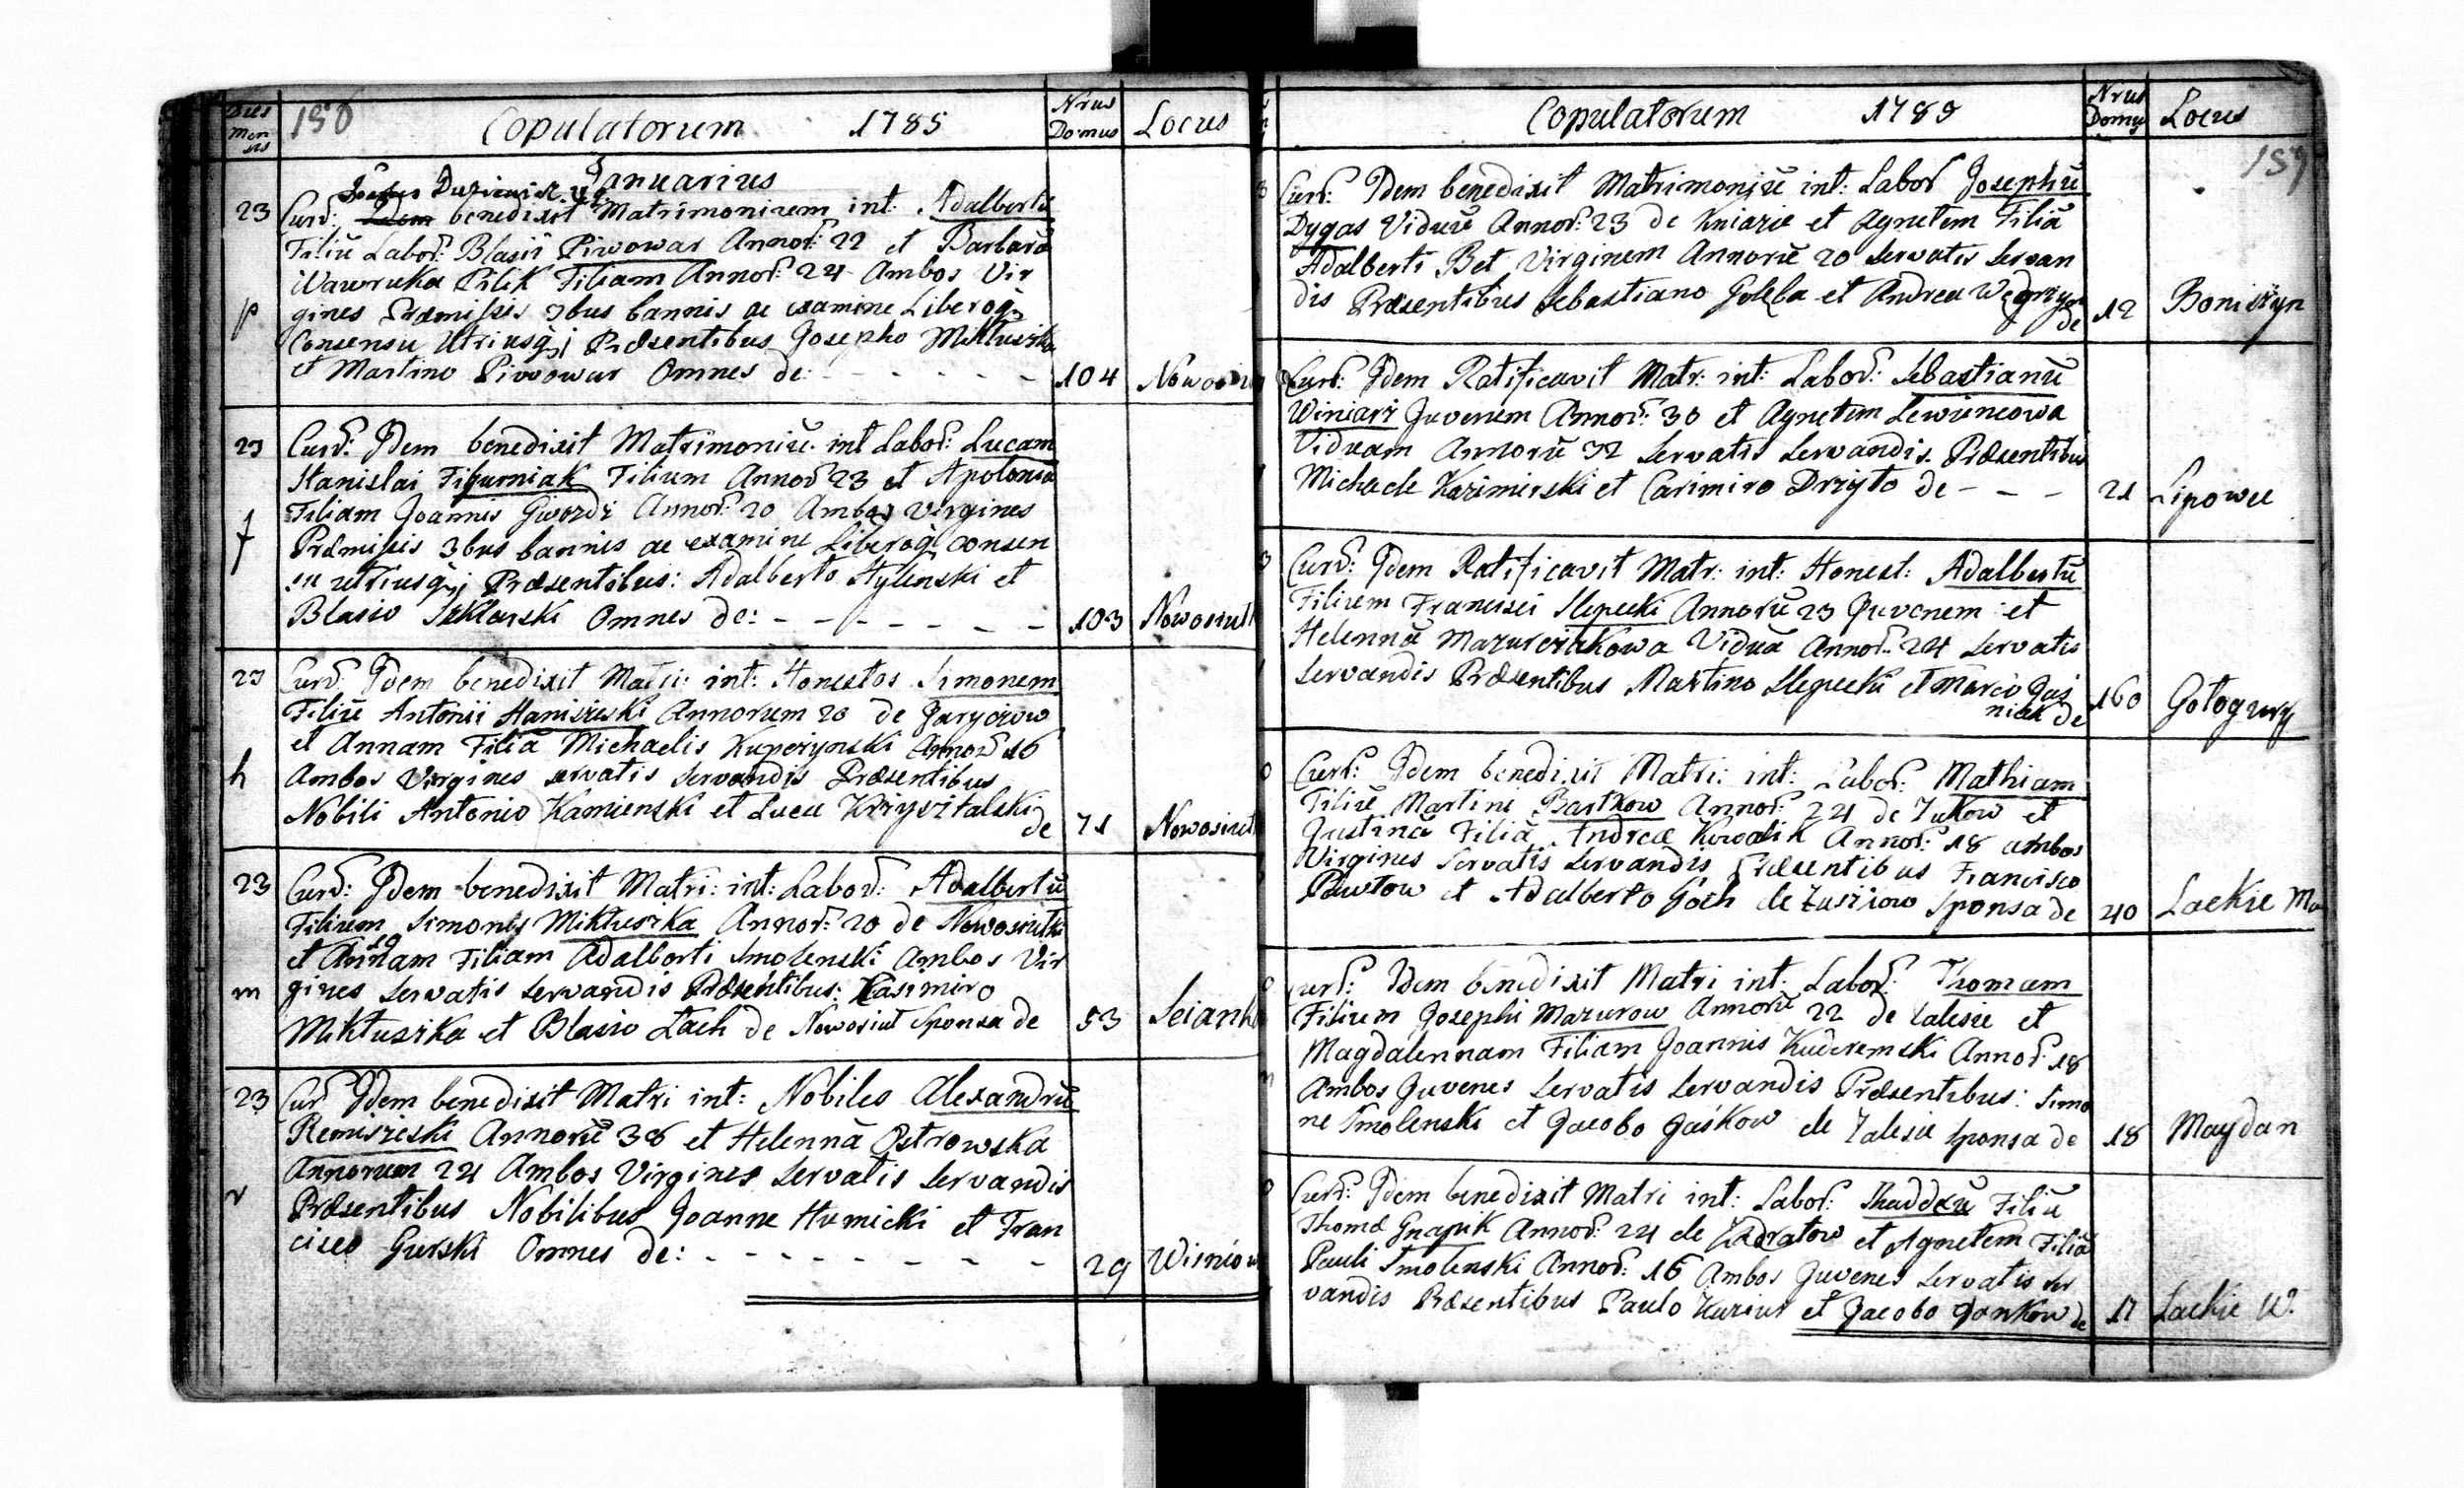 Dies
Men
sis
156
Copulatorum 1785
Nrus
Domus
Locus
Januarius
23
Curd: Idem benedixit Matrimonium int: Adalbertū
Filiū Labor: Blasii Piwowar Annor: 22 et Barbarā
Wawruka Pilik Filiam Annor: 24 Ambos Vir
p
gines Præmissis 3bus bannis ac examine Liberoq;
Consensu Utriusq; Præsentibus Josepho Mikłuszka
et Martino Piwowar Omnes de: - - - - -
104
23
Curd: Idem benedixit Matrimoniū int Labor: Lucam
Stanislai Figurniak Filium Annor 23 et Apolonia
Filiam Joannis Gwozdz Annor: 20 Ambos Virgines
f
Præmissis 3bus bannis ac examine Liberoq; consen
su utriusq; Præsentibus: Adalberto Stylinski et
Blasio Szklarski Omnes de: - - - - - - -
103
23
Curd: Idem benedixit Matri: int: Honestos Simonem
Filiū Antonii Staniszeski Annorum 20 de Jaryczow
et Annam Filiā Michaelis Kupczynski Annor 16
h
Ambos Virgines servatis servandis Præsentibus
Nobili Antonio Kamienski et Luca Krzysztalski
de
71
23
Curd: Idem benedixit Matri: int: Labor: Adalbertū
Filium Simonis Mikłuszka Annor: 20 de Nowosiułki
et Annam Filiam Adalberti Smolenski Ambos Vir
m
gines Servatis Servandis Præsentibus: Casimiro
Mikłuszka et Blasio Lach de Nowosiuł Sponsa de
53
23
Curd Idem benedixit Matri int: Nobiles Alexandrū
Remiszeski Annorū 38 et Helennā Ostrowska
Annorum 24 Ambos Virgines Servatis Servandis
r
Præsentibus Nobilibus Joanne Humicki et Fran
cisco Gurski Omnes de: - - - - - - -
29
Copulatorum 1789
Nrus
Domus
Locus
157
Curd: Idem benedixit Matrimoniū int: Labor Josephū
Dygas Viduū Annor: 23 de Kniazie et Agnetem Filiā
Adalberti Bet Virginem Annorū 20 Servatis Servan
dis Præsentibus Sebastiano Golęba et Andrea
de
12
Boniszyn
Curd: Idem Ratificavit Matr: int: Labor: Sebastianū
Winiarz Juvenem Annor: 30 et Agnetem Lewuncowa
Viduam Annorū 32 Servatis Servandis. Præsentibus
Michaele Kazimirski et Casimiro Drzyto de - - -
21
Lipowce
Curd: Idem Ratificavit Matr: int: Honest: Adalbertū
Filium Francisci Slepecki Annorū 23 Juvenem et
Helennā Mazurczakowa Viduā Annor: 24 Servatis
Servandis Præsentibus Martino Slepecki et Marco Jas
niak de
160
Gołogury
Curd: Idem benedixit Matri: int: Labor: Mathiam
Filiū Martini Bartkow Annor: 24 de Żukow et
Justinā Filiā Andreæ Kowalik Annor: 18 ambos
Virgines Servatis Servandis Præsentibus Francisco
Pawłow et Adalberto Goch de Sponsa de
40
Lackie
Curd: Idem benedixit Matri int: Labor: Thomam
Filium Josephi Mazurow Annorū 22 de Zalesie et
Magdalennam Filiam Joannis Kuderemski Annor 18
Ambos Juvenes Servatis Servandis Præsentibus: Simo
ne Smolenski et Jacobo Jaśkow de Zalesie Sponsa de
18
Maydan
Curd: Idem benedixit Matri int: Labor: Thaddæū Filiū
Thomæ Gnapik Annor: 24 de et Agnetem Filiā
Pauli Smolenski Annor: 16 Ambos Juvenes Servatis Ser
vandis Præsentibus Paulo et Jacobo Jankow de
17
Lackie W.